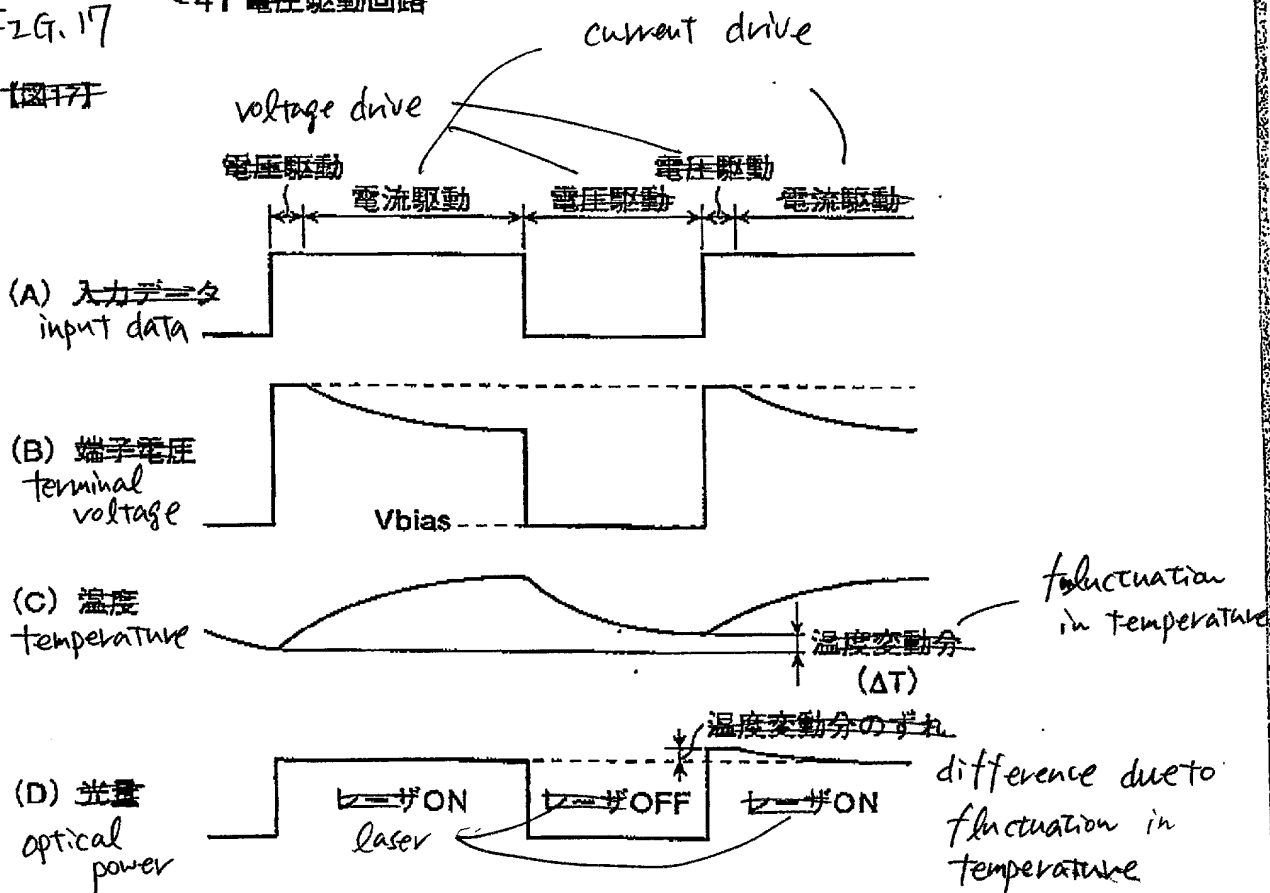 41 電圧駆動回路
FIG. 17
【図17】
current drive
voltage drive
電圧駆動
電圧駆動
電流駆動
電圧駆動
電流駆動
(A) 入力データ
input data
(B) 端子電圧
terminal
voltage
Vbias
(C) 温度
temperature
fluctuation
in temperature
温度変動分
(ΔT)
温度変動分のずれ
(D) 光量
optical
power
レーザON
レーザOFF
レーザON
laser
difference due to
fluctuation in
temperature